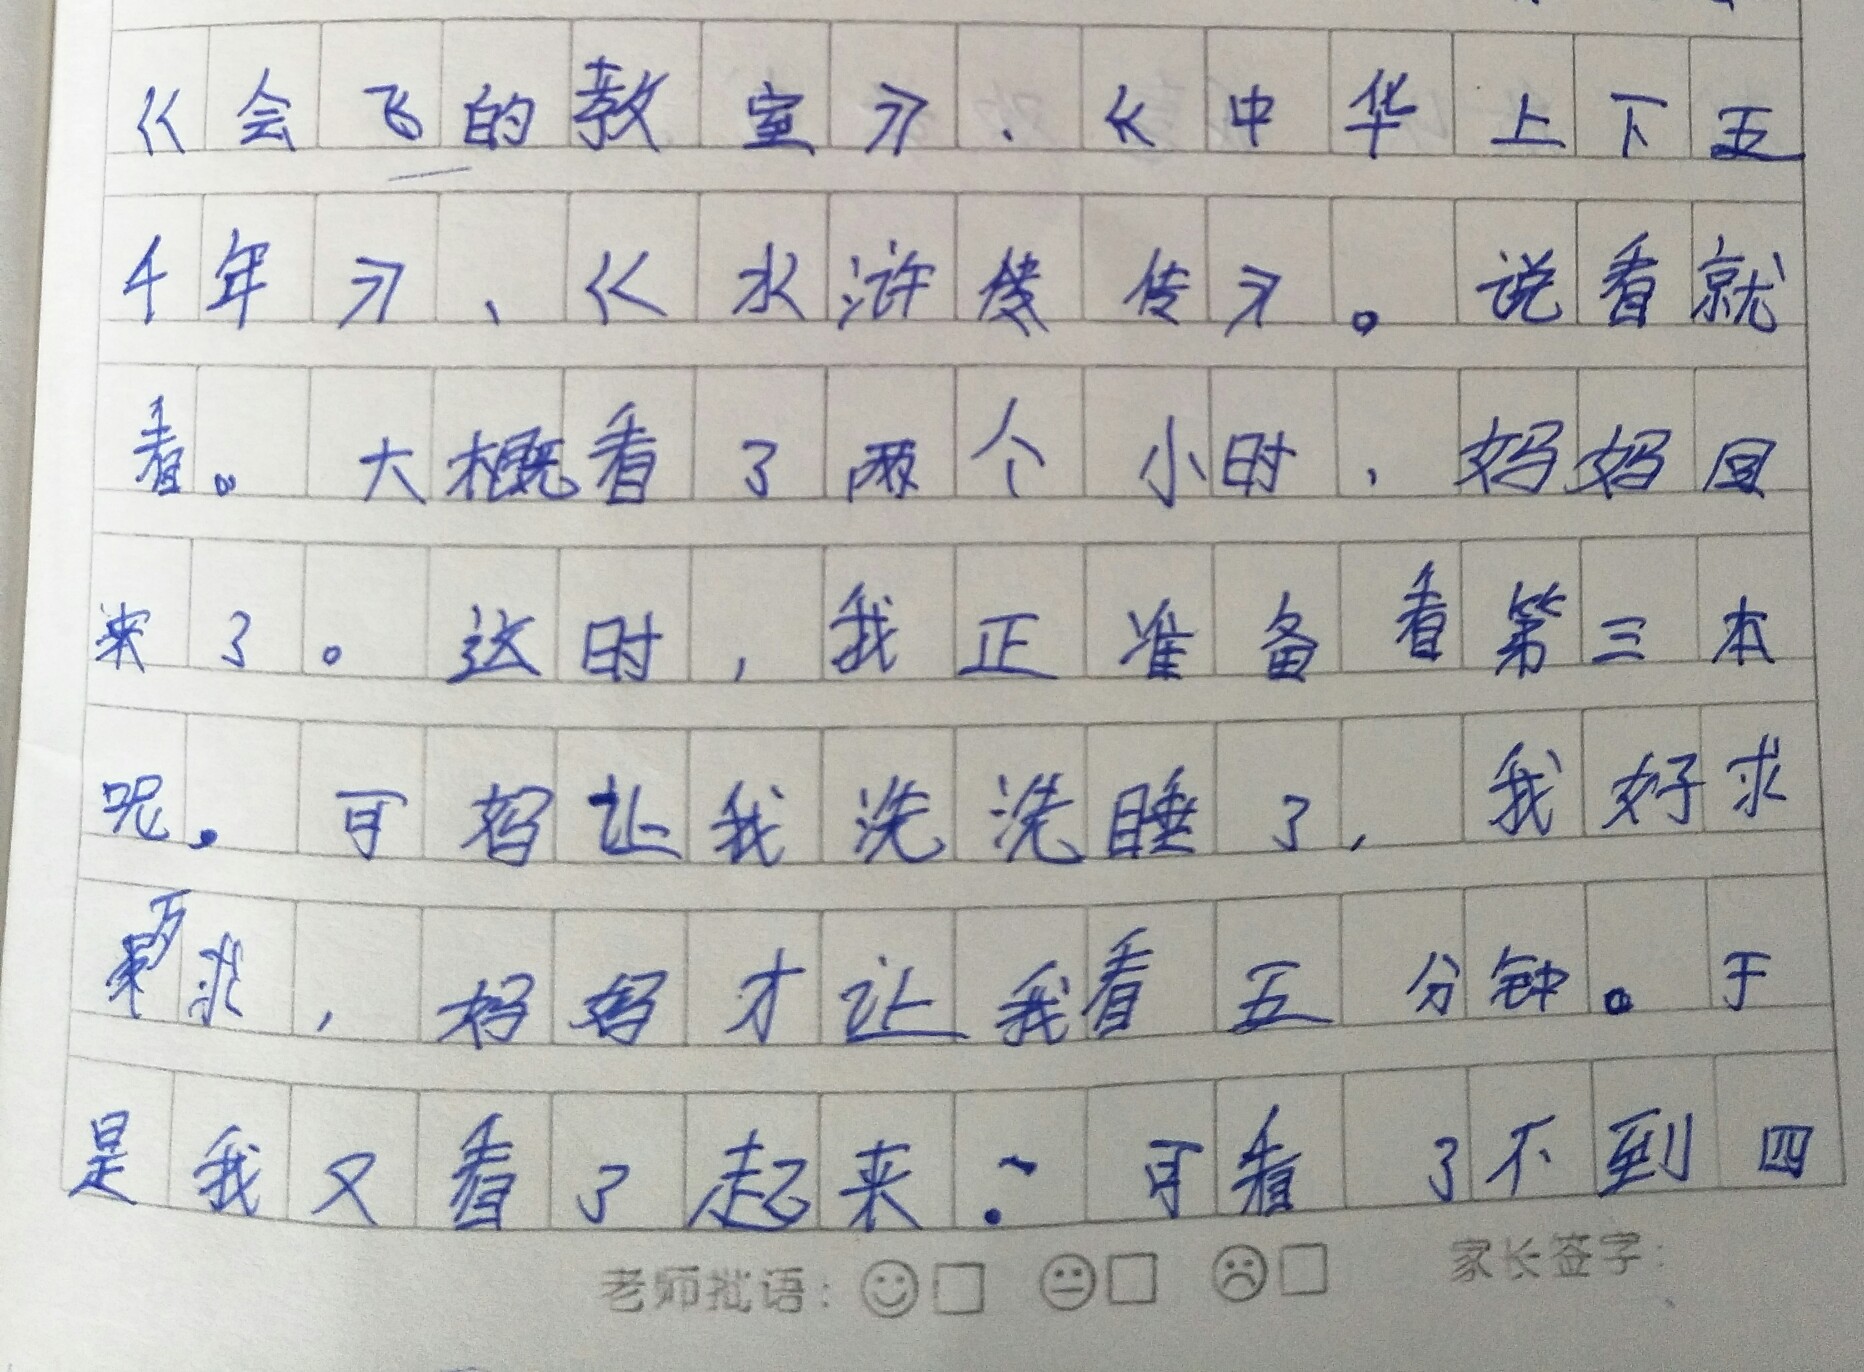 《会飞的教室》、《中华上下五
千年》、《水浒传》。说看就
看。大概看了两个小时，妈妈回
来了。这时，我正准备看第三本
呢。可妈让我洗洗睡了，我好求
万求，妈妈才让我看五分钟。于
是我又看了起来。可看了不到四
老师批语： 家长签字：